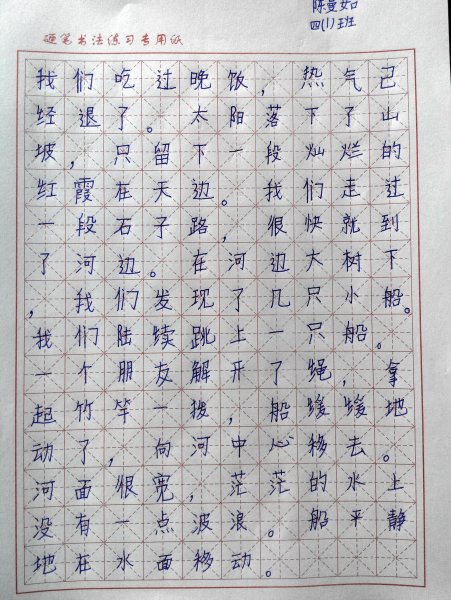 陈曼如
四(1)班
硬笔书法练习专用纸
我们吃过晚饭，热气已
经退了。太阳落下了山
坡，只留下一段灿烂的
红霞在天边。我们走过
一段石子路，很快就到
了河边。在河边大树下
，我们发现了几只小船。
我们陆续跳上一只船。
一个朋友解开了绳，拿
起竹竿一拨，船缓缓地
动了，向河中心移去。
河面很宽，茫茫的水上
没有一点波浪。船平静
地在水面移动。